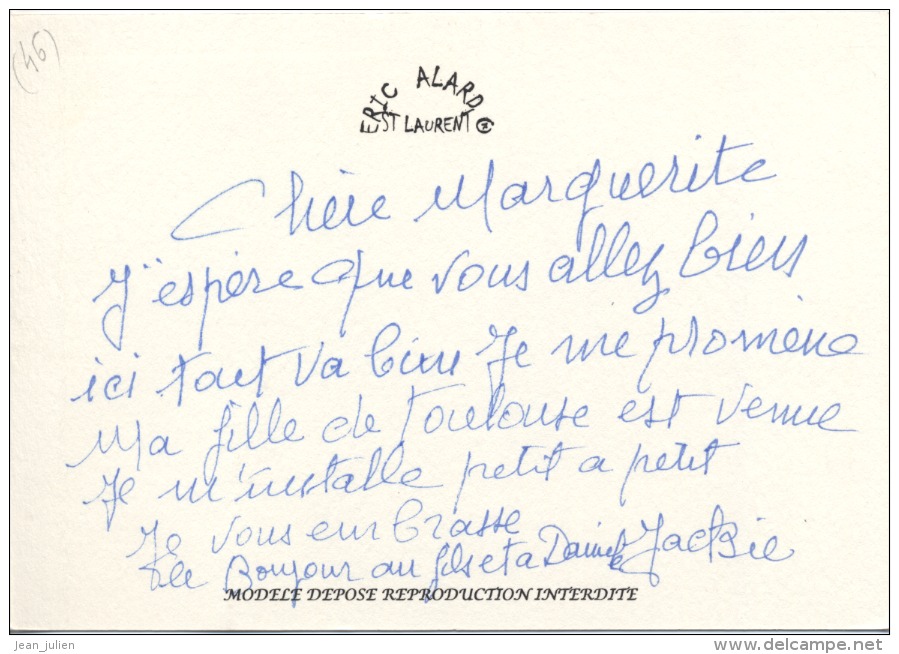 (46)
ERIC ALARD
ST LAURENT ©
Chère Marguerite
J'espère que vous allez bien
ici tout va bien Je me promène
Ma fille de Toulouse est venue
Je m'installe petit a petit
Je vous embrasse
Le Bonjour au fils et a Daniele Jackie
MODELE DEPOSE REPRODUCTION INTERDITE
jean_julien
www.delcampe.net